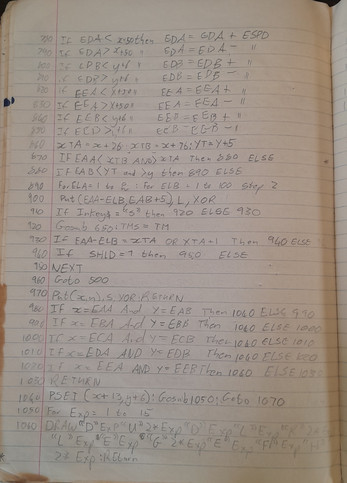 780 If EDA < x+30 then EDA = EDA + ESPD
790 If EDA > x+30 " EDA = EDA - "
800 If EDB < y+6 " EDB = EDB + "
810 If EDB > y+6 " EDB = EDB - "
820 If EEA < x+30 " EEA = EEA + "
830 If EEA > x+30 " EEA = EEA - "
840 If EEB < y+6 " EEB = EEB + "
850 If
860 XTA = x+26 : XTB = x+36 : YT = Y+5
870 If EAA < XTB AND > XTA Then 880 ELSE
880 If EAB < YT and > y then 890 ELSE
890 For ELA = 1 to : For ELB = 1 to 100 Step 2
900 Put (EAA-ELB, EAB+5), L, XOR
910 If Inkey$ = "5" then 920 ELSE 930
920 Gosub 650 : TMS = TM
930 If EAA-ELB = XTA OR XTA+1 Then 940 Else
940 If SHLD = then 950 ELSE
950 NEXT
960 Goto 500
970 Put (x,y), S, XOR : Return
980 If x = EAA And Y = EAB Then 1040 ELSE 990
990 If x = EBA And Y = EBB Then 1040 ELSE 1000
1000 If x = ECA And Y = ECB Then 1040 ELSE 1010
1010 If x = EDA AND Y = EDB Then 1040 ELSE 1020
1020 If x = EEA AND Y = EEB Then 1040 ELSE 1030
1030 RETURN
1040 PSET (x+13, y+6) : Gosub 1050 : Goto 1070
1050 For Exp = 1 to 15
1060 DRAW "D" Exp "U" 2*Exp "D" Exp "L" Exp "R"
"L" Exp "E" Exp "G" 2*Exp "E" Exp "F" Exp "H"
2* Exp : Return